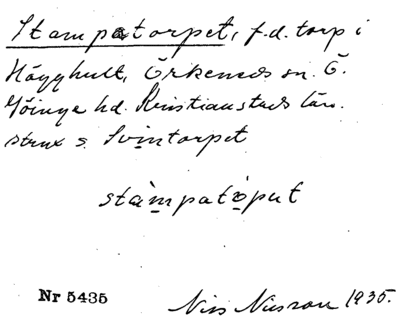 Stampatorpet, f.d. torp i
Hägghult, Örkeneds sn. Ö.
Göinge hd. Kristianstads län.
strax s. Svintorpet
stàmpatòput
Nr 5435 Nils Nilsson 1935.